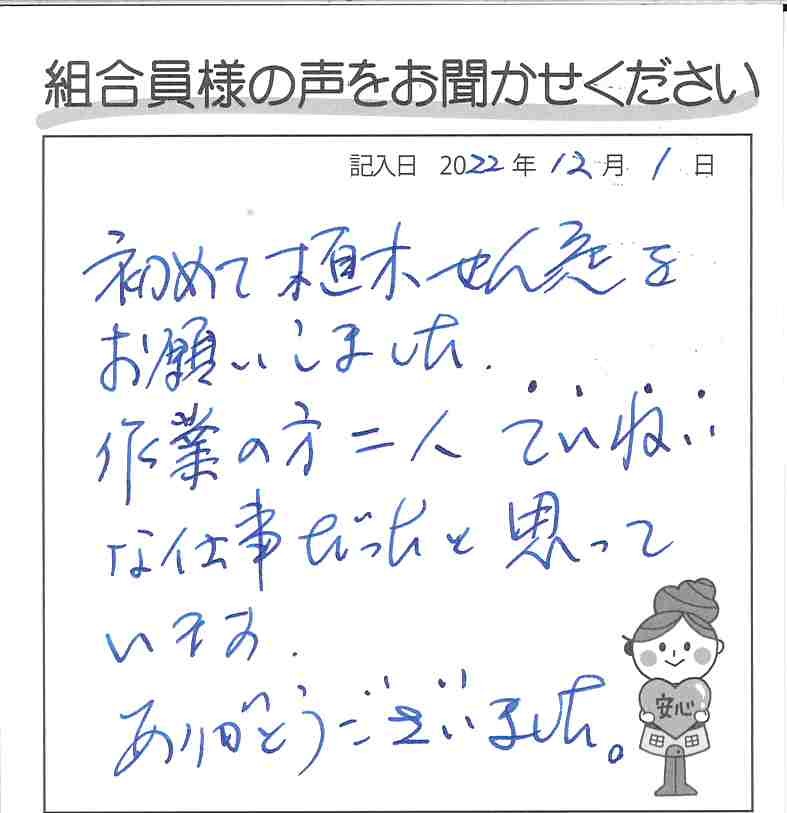 組合員様の声をお聞かせください
記入日 2022年12月1日
初めて植木せん定を
お願いしました.
作業の方二人 ていねい
な仕事だったと思って
います.
ありがとうございました。
安心